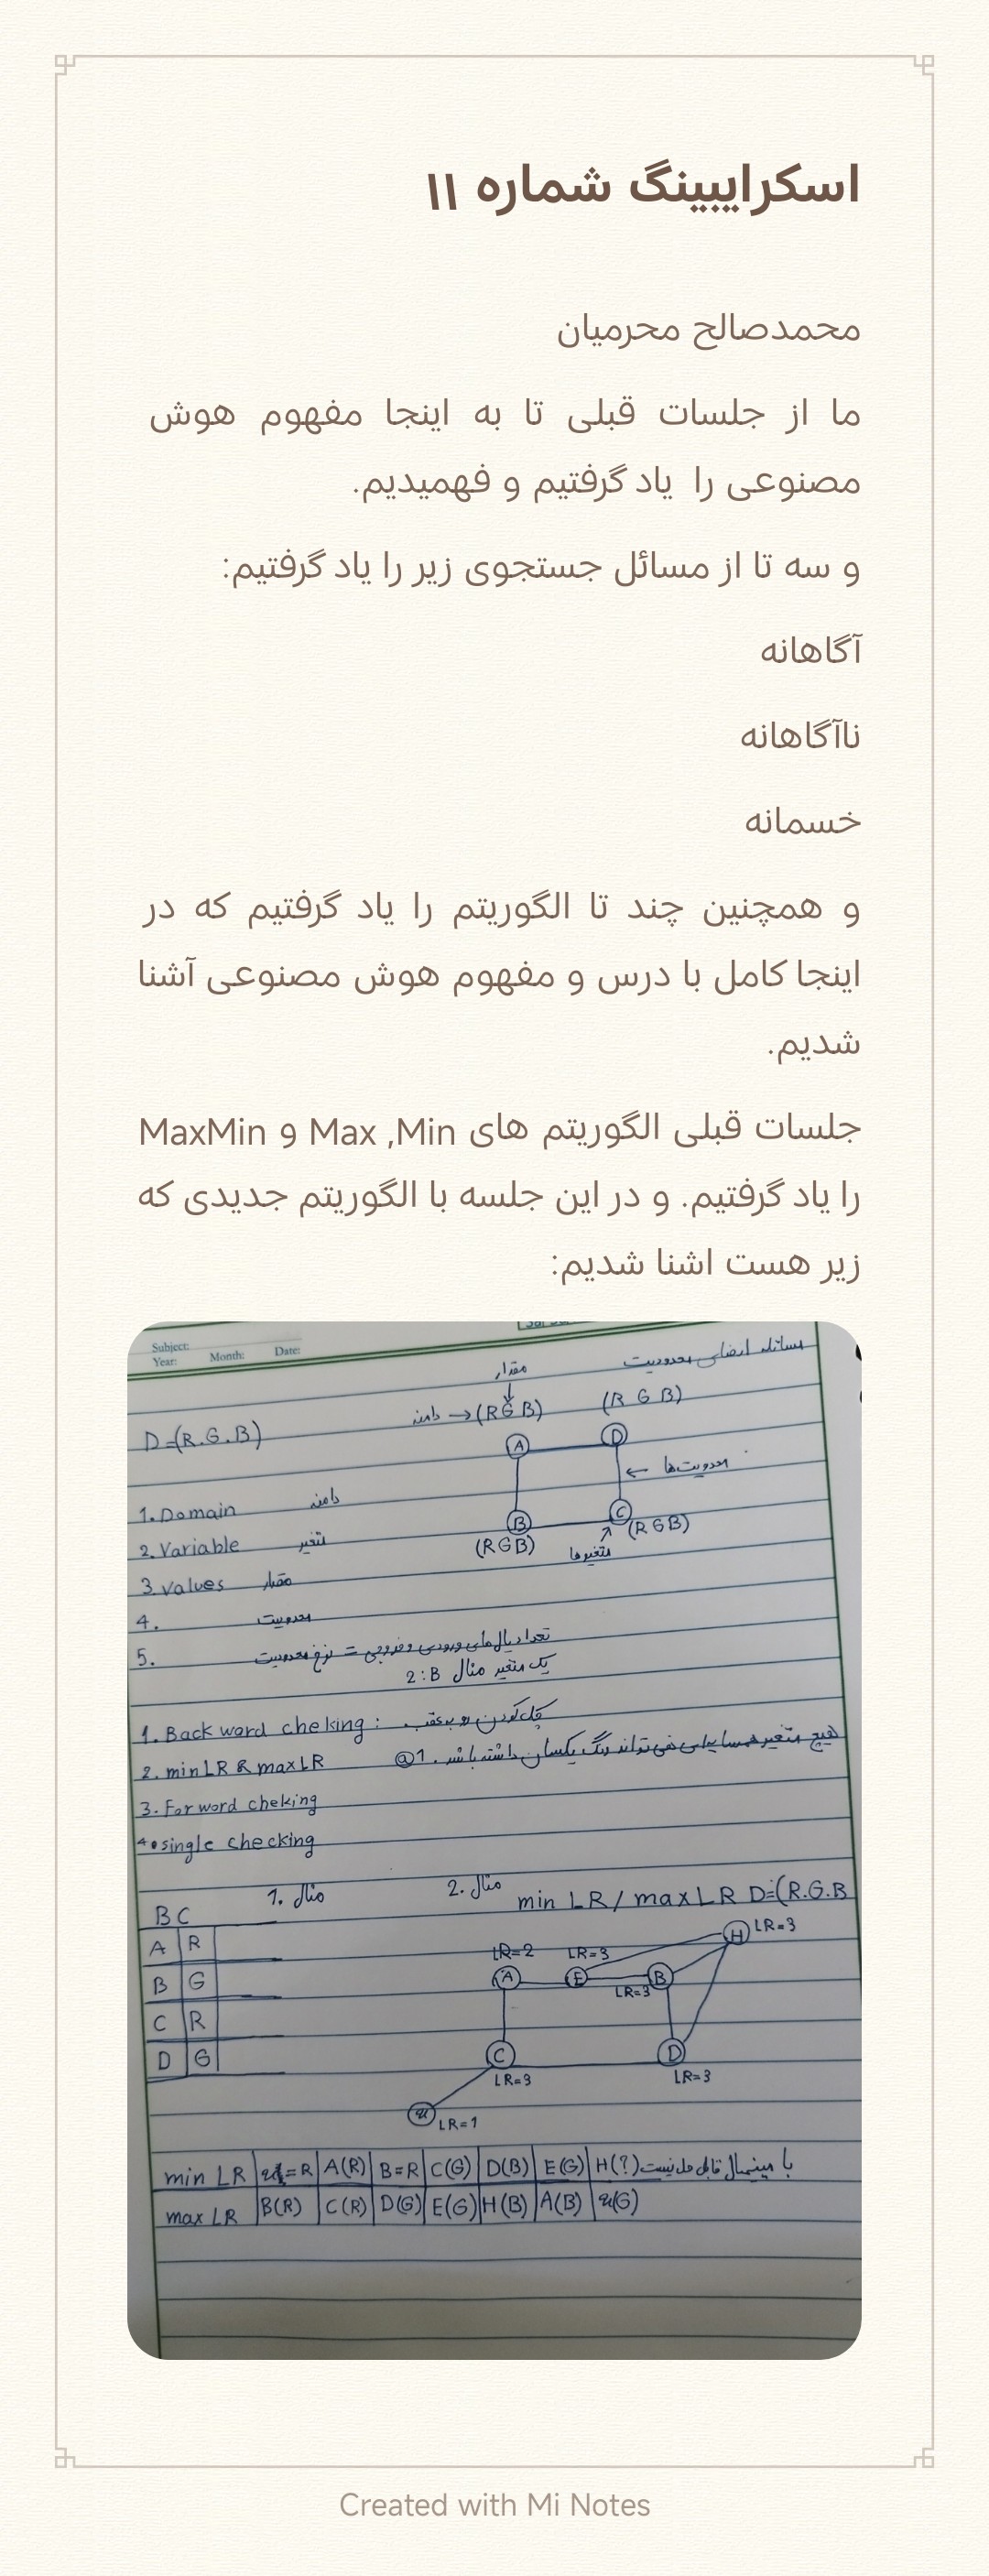 اسکرایبینگ شماره ۱۱
محمدصالح محرمیان
ما از جلسات قبلی تا به اینجا مفهوم هوش
مصنوعی را یاد گرفتیم و فهمیدیم.
و سه تا از مسائل جستجوی زیر را یاد گرفتیم:
آگاهانه
ناآگاهانه
خسمانه
و همچنین چند تا الگوریتم را یاد گرفتیم که در
اینجا کامل با درس و مفهوم هوش مصنوعی آشنا
شدیم.
جلسات قبلی الگوریتم های Max ,Min و MaxMin
را یاد گرفتیم. و در این جلسه با الگوریتم جدیدی که
زیر هست اشنا شدیم:
Subject:
Year: Month: Date:
مسائله ارضای محدودیت
مقدار
(R G B)
دامنه → (RGB)
D=(R.G.B)
A D
محدودیت‌ها
1. Domain دامنه
B C (RGB)
2. Variable متغیر
(RGB) متغیرها
3. values مقدار
4. محدودیت
5. تعداد یال‌های ورودی و خروجی = نرخ محدودیت
یک متغیر مثال B : 2
1. Back word cheking : چک کردن رو به عقب.
2. min LR & max LR @1. هیچ متغیر همسایه‌ای نمی‌تواند رنگ یکسان داشته باشد
3. For word cheking
4. single checking
مثال 1. مثال 2. min LR / max LR D=(R.G.B
BC
A R
B G
C R
D G
H LR=3
LR=2 LR=3
A E B
LR=3
C D
LR=3 LR=3
LR=1
min LR =R A(R) B=R C(G) D(B) E(G) H(?) با مینیمال قابل حل نیست
max LR B(R) C(R) D(G) E(G) H(B) A(B) (G)
Created with Mi Notes